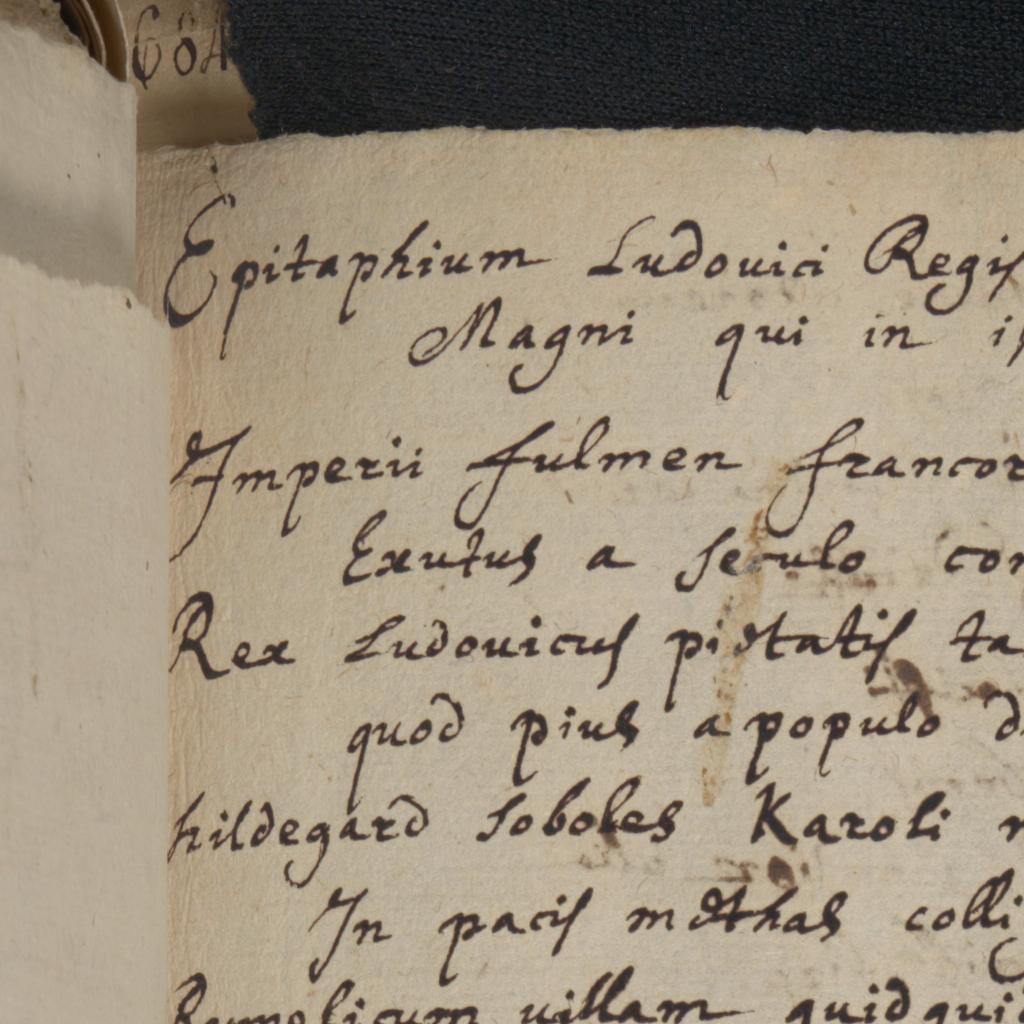 684
Epitaphium Ludouici Regis
Magni qui in
Imperii fulmen francor
Exutus a seculo con
Rex Ludouicus pietatis ta
quod pius a populo
hildegard soboles Karoli
In pacis methas colli
Rumolicum uillam quidqui